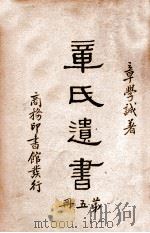 章學誠著
章氏遺書
第五冊
商務印書館發行